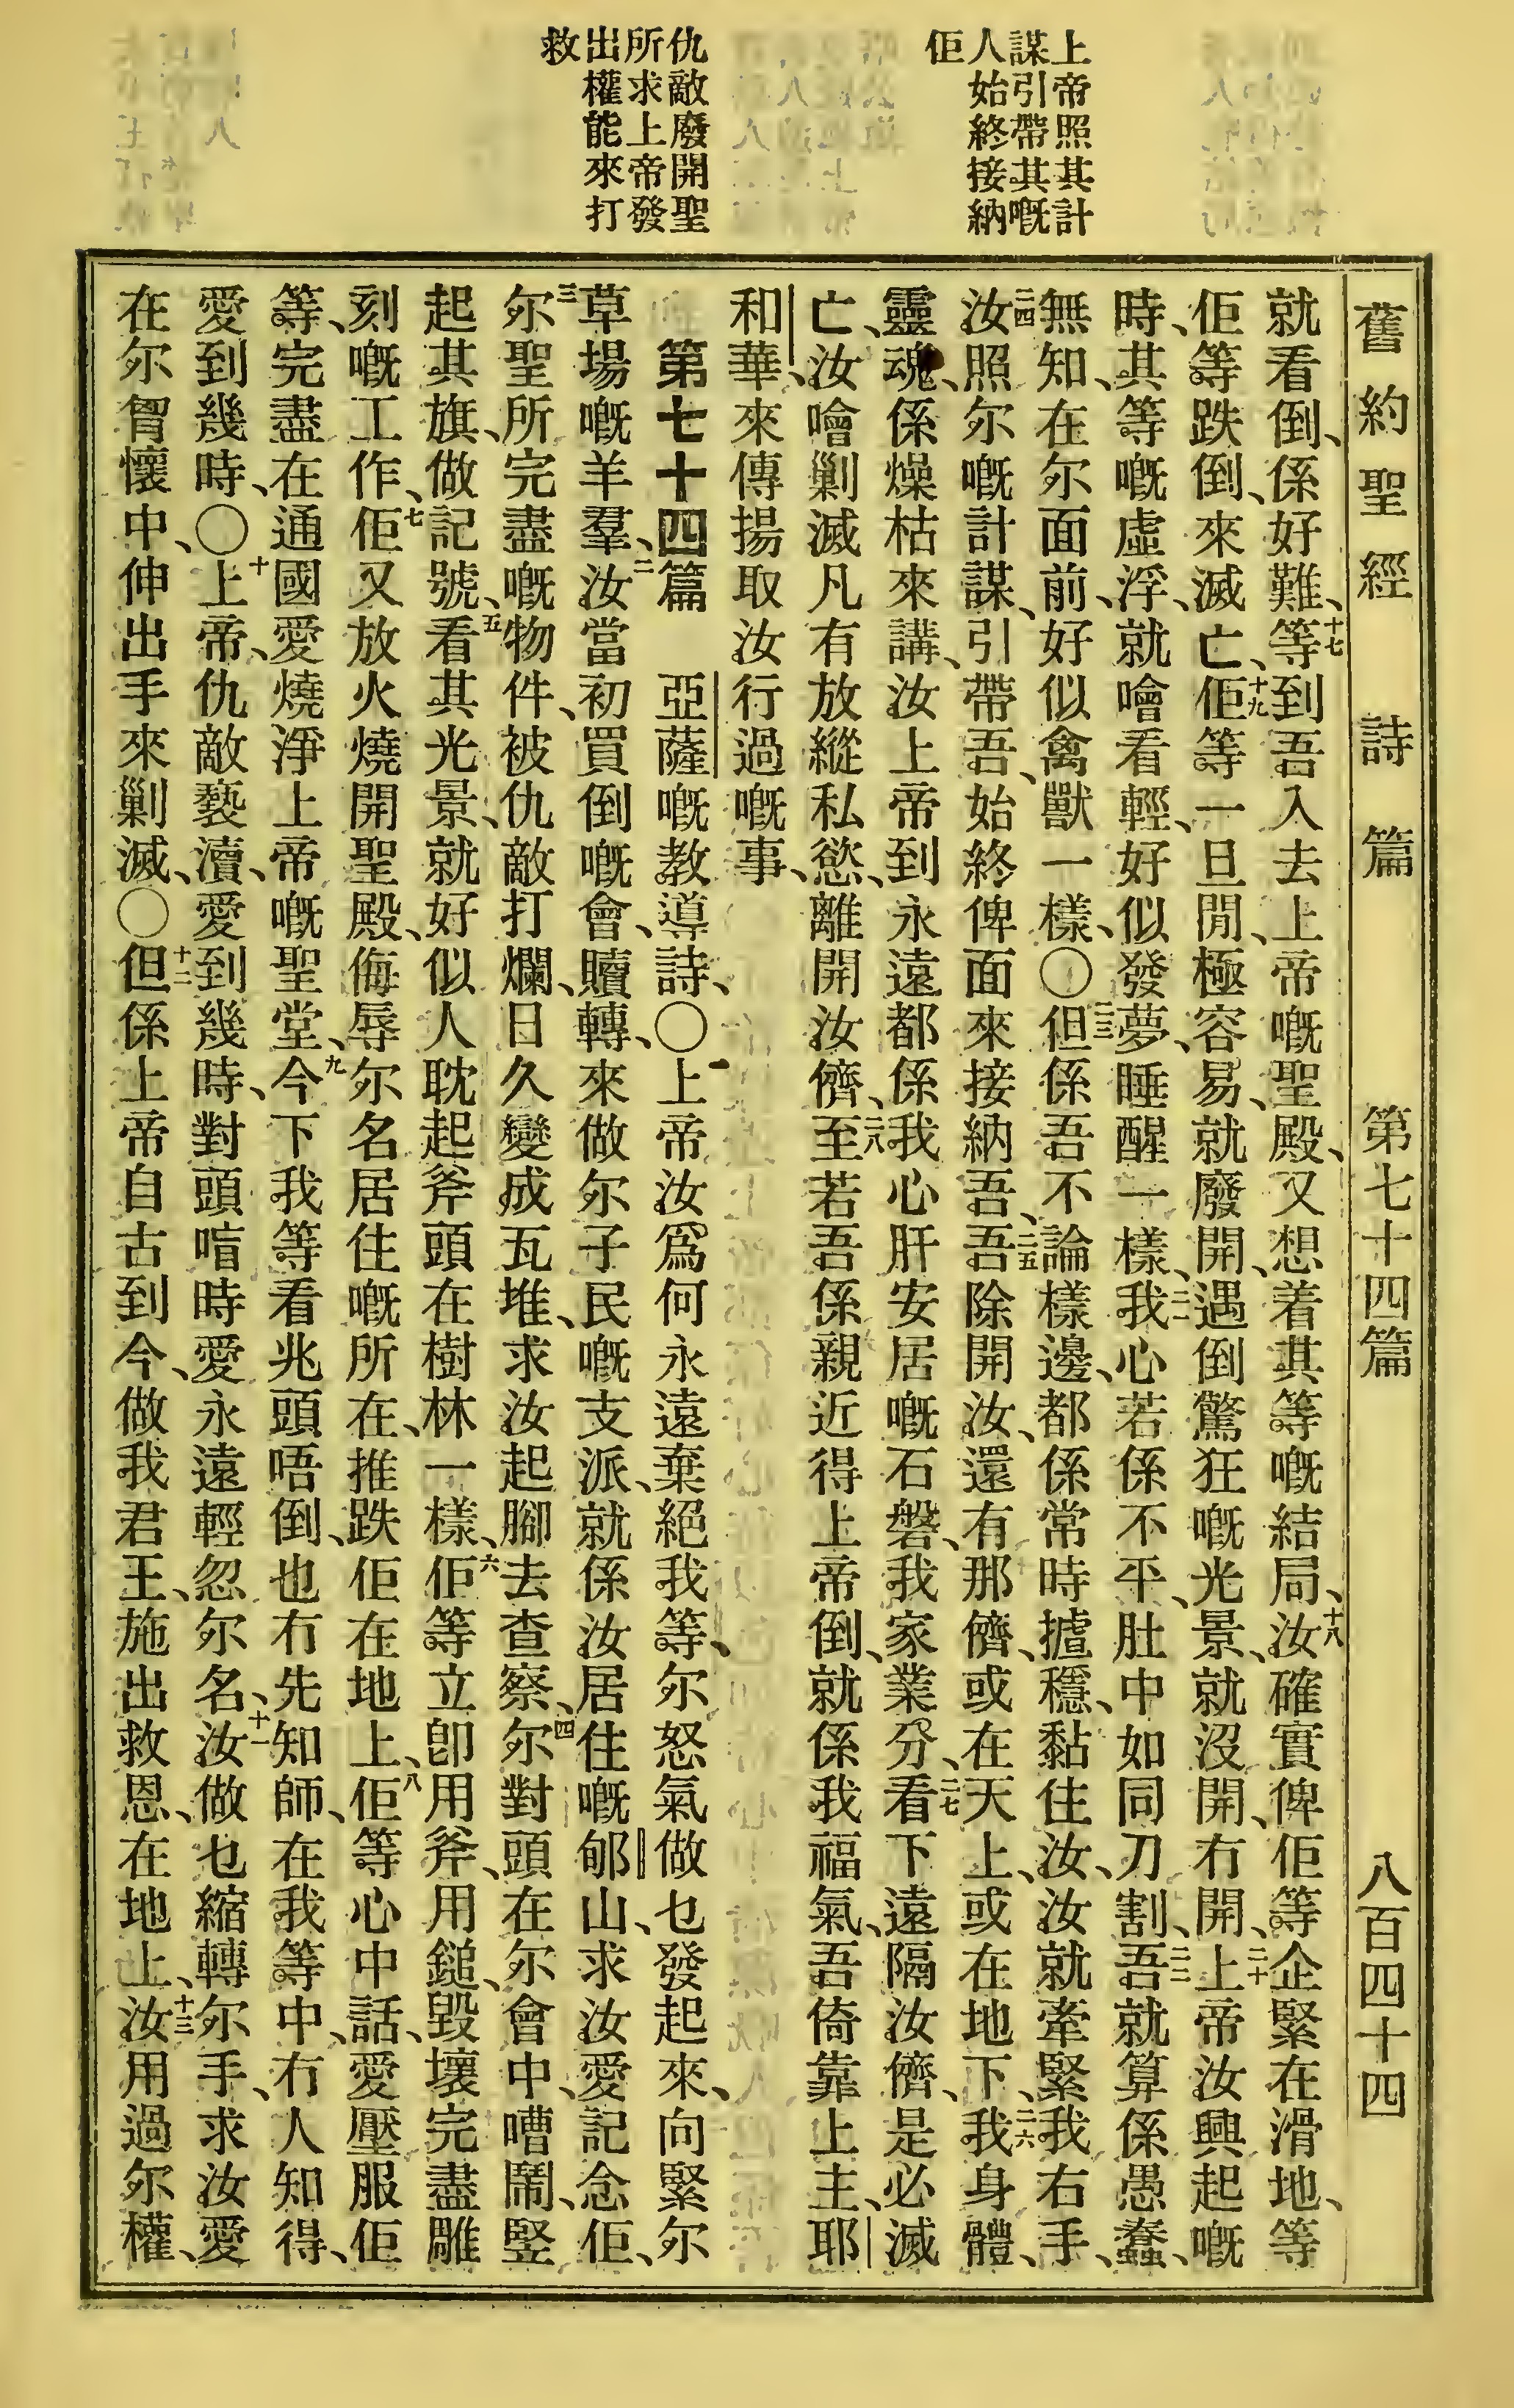 上帝照其計
謀引帶其嘅
人始終接納
佢
仇敵廢開聖
所求上帝發
出權能來打
救
舊約聖經 詩篇 第七十四篇 八百四十四
就看倒、係好難、十七等到吾入去上帝嘅聖殿、又想着其等嘅結局、十八汝確實俾佢等企緊在滑地、等
佢等跌倒、來滅亡、十九佢等一旦閒、極容易、就廢開、遇倒驚狂嘅光景、就沒開、冇開、二十上帝汝興起嘅
時、其等嘅虛浮、就噲看輕、好似發夢、睡醒一樣、二一我心若係不平、肚中如同刀割、二二吾就算係愚蠢、
無知、在尔面前、好似禽獸一樣、〇二三但係吾不論樣邊、都係常時攄穩、黏住汝、汝就牽緊我右手、
二四汝照尔嘅計謀、引帶吾、始終俾面來接納吾、二五吾除開汝、還有那儕、或在天上、或在地下、二六我身體、
靈魂、係燥枯來講、汝上帝到永遠都係我心肝安居嘅石磐、我家業分、二七看下遠隔汝儕、是必滅
亡、汝噲剿滅凡有放縱私慾、離開汝儕、二八至若吾係親近得上帝倒、就係我福氣、吾倚靠上主、耶
和華、來傳揚取汝行過嘅事、
第七十四篇 亞薩嘅教導詩、〇一上帝汝爲何永遠棄絕我等、尔怒氣做乜發起來、向緊尔
草場嘅羊羣、二汝當初買倒嘅會、贖轉、來做尔子民嘅支派、就係汝居住嘅郇山、求汝愛記念佢、
三尔聖所完盡嘅物件、被仇敵打爛、日久變成瓦堆、求汝起腳去查察、四尔對頭在尔會中、嘈鬧、竪
起其旗、做記號、五看其光景、就好似人耽起斧頭在樹林一樣、六佢等立卽用斧、用鎚、毀壞完盡雕
刻嘅工作、七佢又放火燒開聖殿、侮辱尔名居住嘅所在、推跌佢在地上、八佢等心中話、愛壓服佢
等、完盡在通國愛燒淨上帝嘅聖堂、九今下我等看兆頭唔倒、也冇先知師、在我等中、冇人知得、
愛到幾時、〇十上帝、仇敵褻瀆、愛到幾時、對頭唁時愛永遠輕忽尔名、十一汝做乜縮轉尔手、求汝愛
在尔胷懷中、伸出手來剿滅、〇十二但係上帝自古到今、做我君王、施出救恩、在地上、十三汝用過尔權、